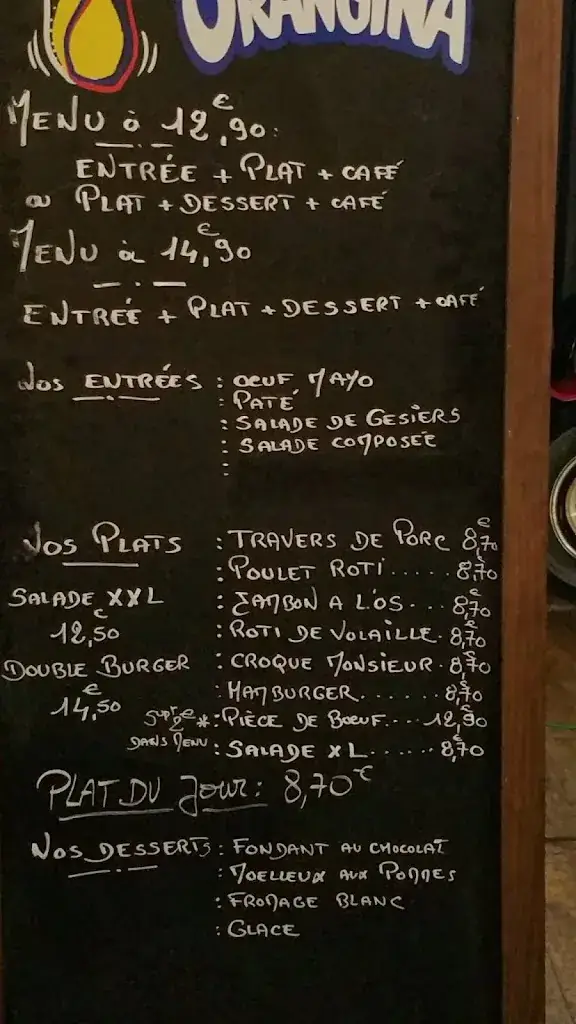 ORANGINA
MENU à 12,€90:
ENTRÉE + PLAT + CAFÉ
ou PLAT + DESSERT + CAFÉ
MENU à 14,€90
ENTRÉE + PLAT + DESSERT + CAFÉ
NOS ENTRÉES : OEUF MAYO
: PATÉ
: SALADE DE GESIERS
: SALADE COMPOSÉE
:
NOS PLATS : TRAVERS DE PORC 8,€70
: POULET ROTI..... 8,€70
SALADE XXL : JAMBON A L'OS... 8,€70
12,€50 : ROTI DE VOLAILLE. 8,€70
DOUBLE BURGER : CROQUE MONSIEUR. 8,€70
14,€50 : HAMBURGER....... 8,€70
2€ *: PIÈCE DE BOEUF... 12,€90
DANS MENU : SALADE XL...... 8,€70
PLAT DU JOUR: 8,70€
NOS DESSERTS : FONDANT AU CHOCOLAT
: MOELLEUX AUX POMMES
: FROMAGE BLANC
: GLACE